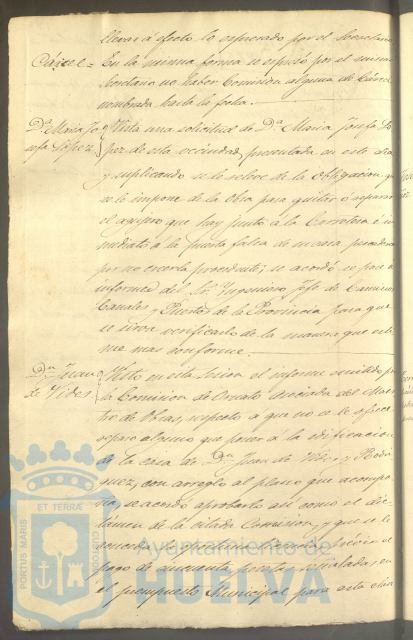 llevar á efecto lo espresado por el Secretario
Cárcel = En la misma forma se espuso por el mismo
Secretario no haber Comision alguna de Cárcel
nombrada hasta la fecha.
Dª Maria Jo- Vista una solicitud de Dª Maria Josefa Lo
sefa Lopez pez de esta vecindad, presentada en este dia
y suplicando se le releve de la obligacion que
se le impone de la Obra para quitar ó separar
el agujero que hay junto á la Carretera é in
mediato á la puerta falsa de su casa,
por no creerla procedente; se acordó se pase á
informe del Sr. Ingeniero Jefe de Caminos
Canales y Puertos de la Provincia para que
se sirva verificarlo de la manera que esti-
me mas conforme.
Dn Juan Visto en esta sesion el informe emitido por
de Vides la Comision de Ornato asociada del Maes
tro de Obras, respecto á que no se le ofrece
reparo alguno que poner á la edificacion
de la casa de Dn Juan de Vides y Rodri
guez, con arreglo al plano que acompa
ña, se acordó aprobarlo asi como el dic
tamen de la citada Comision, y que se le
conceda la licencia previo el
pago de cincuenta pesetas señaladas en
el presupuesto Municipal para esta clase
PORTUS MARIS ET TERRÆ CUSTODIA
Ayuntamiento de
HUELVA